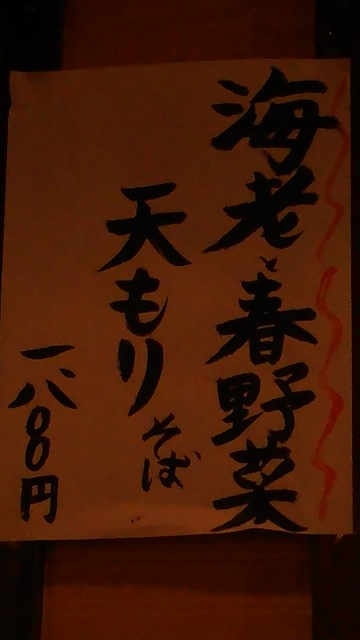 海老と春野菜
天もりそば
一八〇〇円